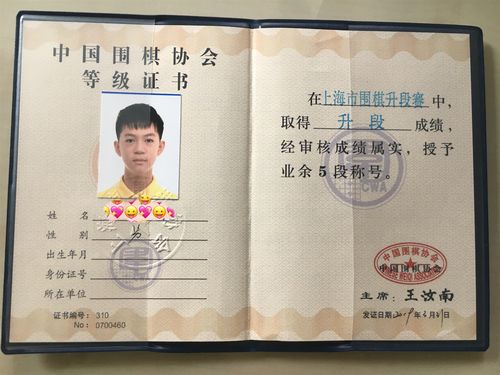 中国围棋协会
等级证书
姓名
性别 男
出生年月
身份证号
所在单位
证书编号: 310
No: 0700460
在上海市围棋升段赛中,
取得 升段 成绩,
经审核成绩属实, 授予
业余5段称号。
CWA
中国围棋协会
中国围棋协会
主席: 王汝南
发证日期